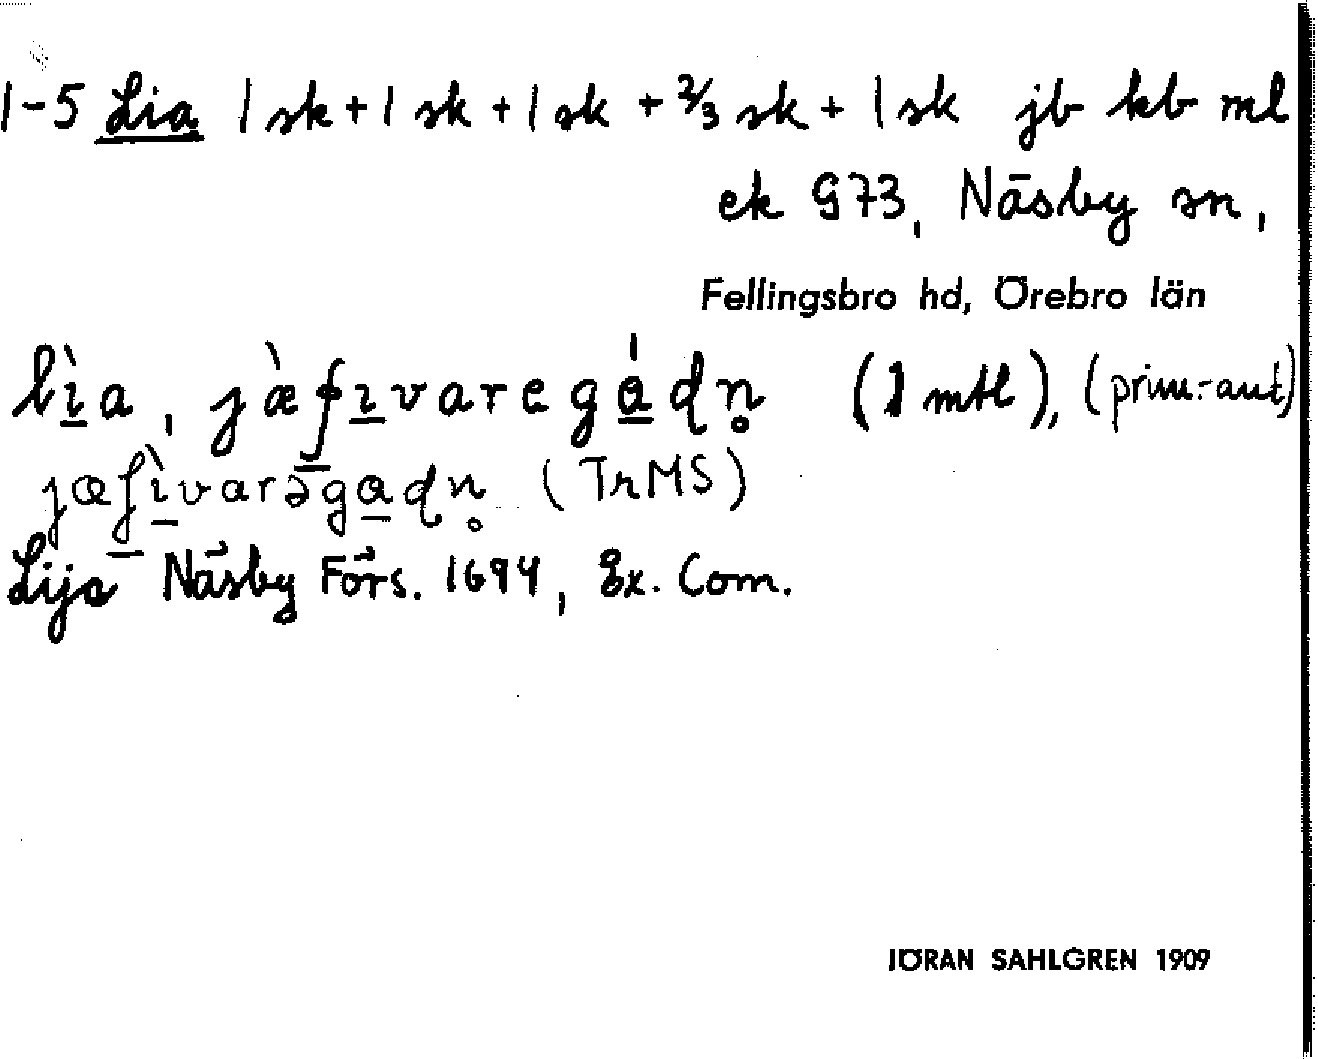 1-5 Lia 1 sk + 1 sk + 1 sk + 2/3 sk + 1 sk jb kb ml
ek G73, Näsby sn,
Fellingsbro hd, Örebro län
lìa, jæ̀fɪvaregádn̥ (1 mtl), (prim.-aut)
jæfìvarəgadn̥ (TrMS)
Lija Näsby Förs. 1694, Ex. Com.
JÖRAN SAHLGREN 1909